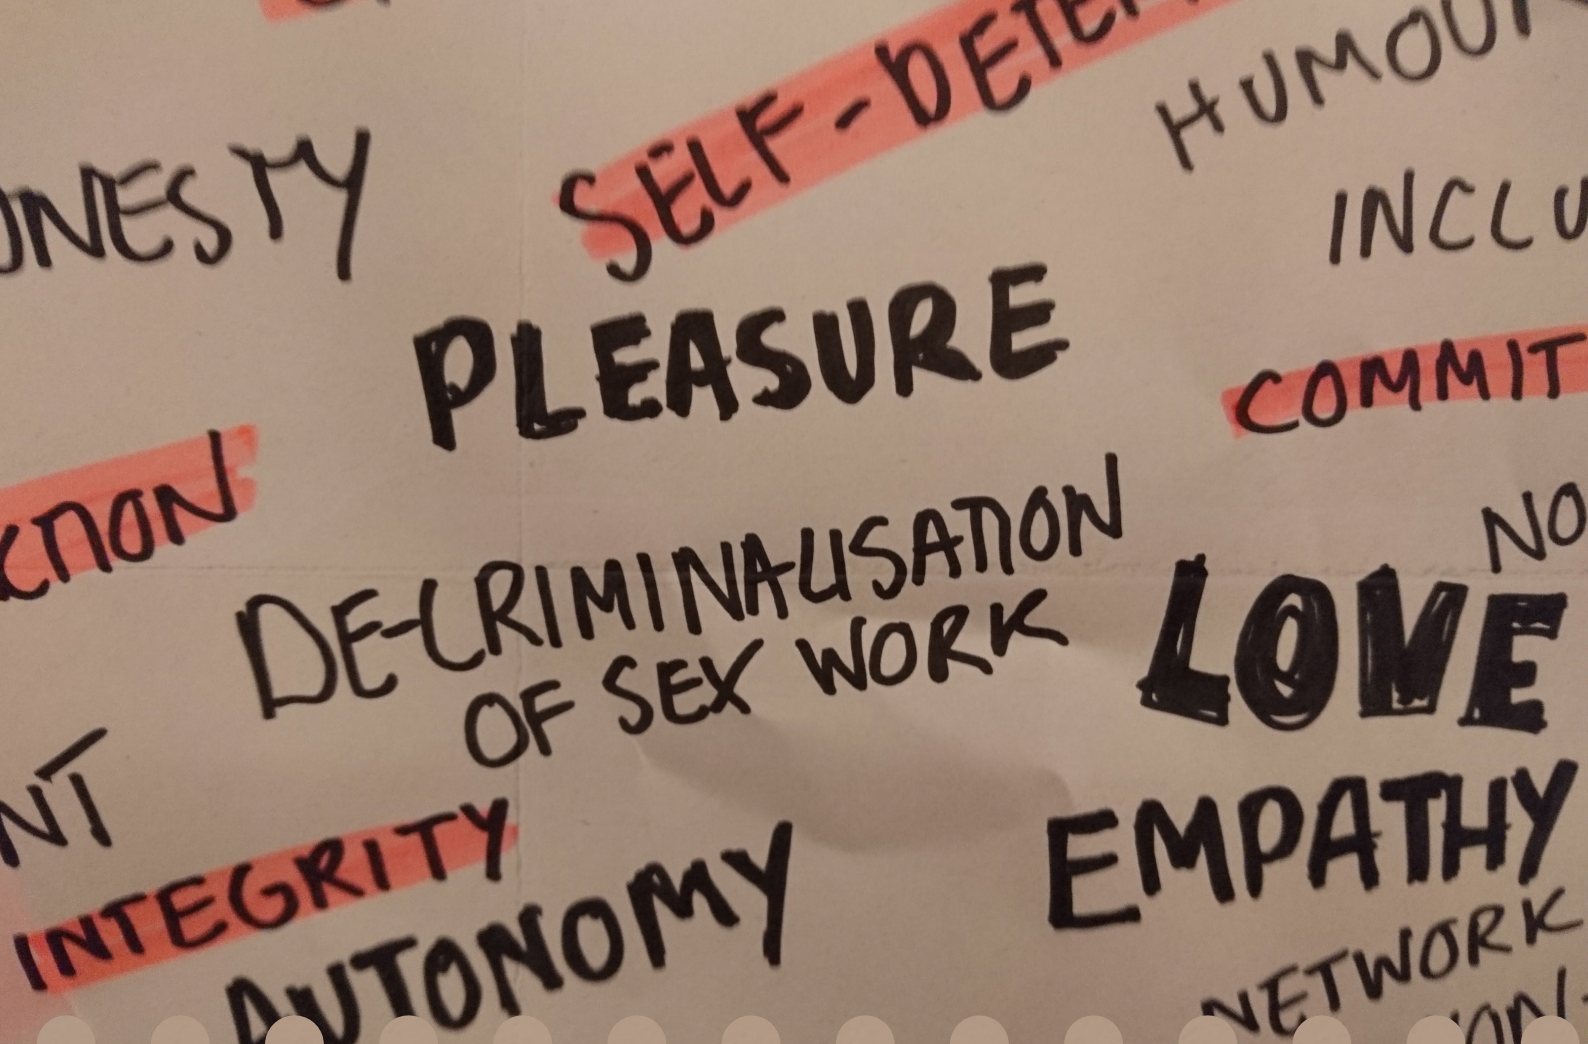 ONESTY
SELF-DETE
HUMOU
INCLU
PLEASURE
COMMIT
CTION
DE-CRIMINALISATION
OF SEX WORK
NO
LOVE
NT
INTEGRITY
AUTONOMY
EMPATHY
NETWORK